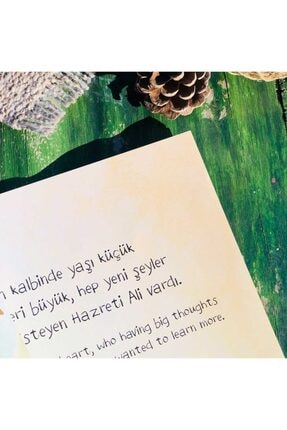 kalbinde yaşı küçük
büyük, hep yeni şeyler
steyen Hazreti Ali vardı.
who having big thoughts
wanted to learn more.